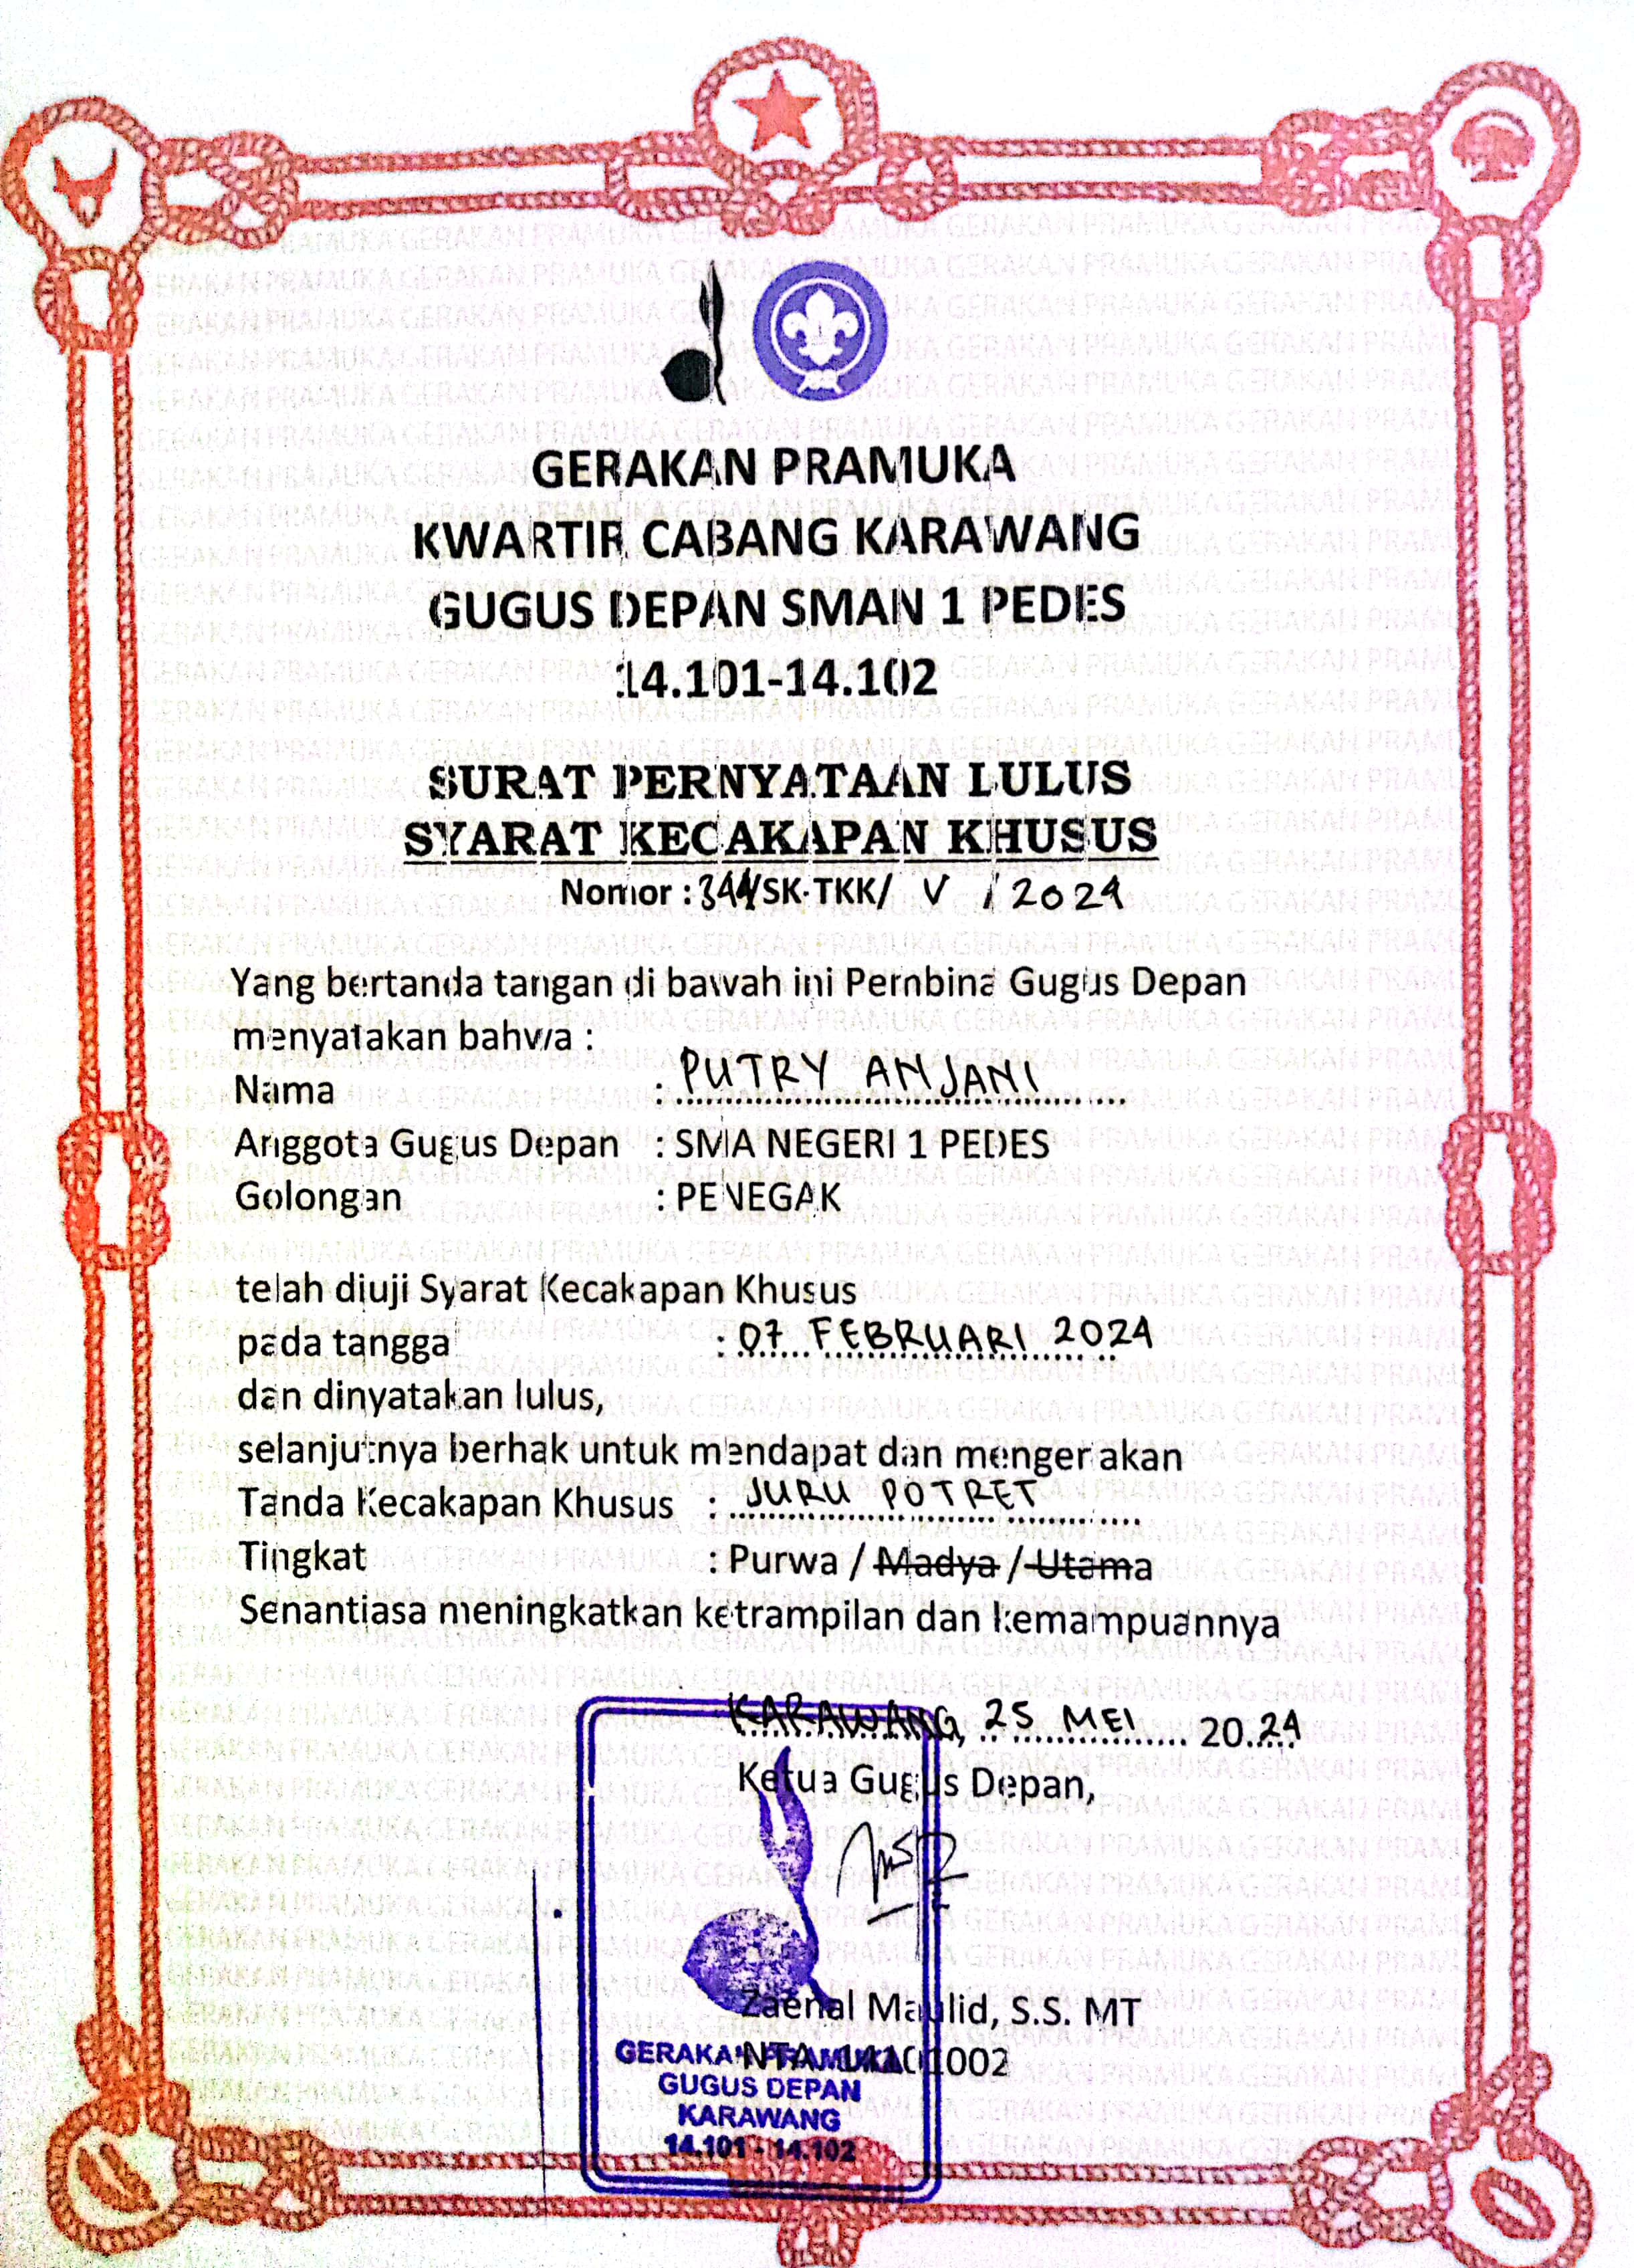 GERAKAN PRAMUKA
KWARTIR CABANG KARAWANG
GUGUS DEPAN SMAN 1 PEDES
14.101-14.102
SURAT PERNYATAAN LULUS
SYARAT KECAKAPAN KHUSUS
Nomor : 344/SK-TKK/ V / 2024
Yang bertanda tangan di bawah ini Pembina Gugus Depan
menyatakan bahwa :
Nama : PUTRY ANJANI
Anggota Gugus Depan : SMA NEGERI 1 PEDES
Golongan : PENEGAK
telah diuji Syarat Kecakapan Khusus
pada tanggal : 07 FEBRUARI 2024
dan dinyatakan lulus,
selanjutnya berhak untuk mendapat dan mengenakan
Tanda Kecakapan Khusus : JURU POTRET
Tingkat : Purwa / Madya / Utama
Senantiasa meningkatkan ketrampilan dan kemampuannya
KARAWANG, 25 MEI 2024
Ketua Gugus Depan,
Zaenal Maulid, S.S. MT
NTA
GERAKAN PRAMUKA
GUGUS DEPAN
KARAWANG
14.101 - 14.102